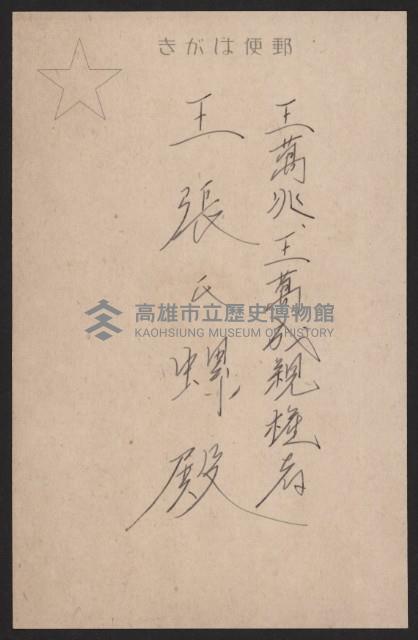 きがは便郵
王萬兆、王萬成親権者
王張氏螺殿
高雄市立歷史博物館
KAOHSIUNG MUSEUM OF HISTORY